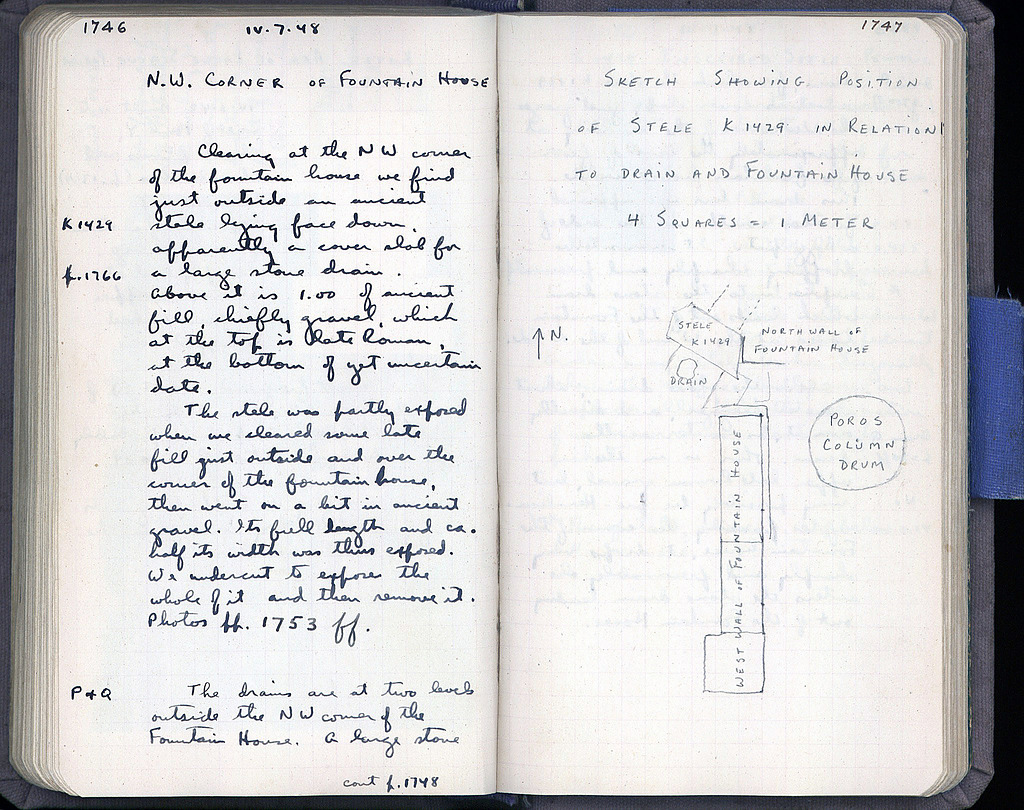 1746
IV.7.48
N.W. CORNER OF FOUNTAIN HOUSE
Clearing at the NW corner
of the fountain house we find
just outside an ancient
K 1429 stele lying face down,
apparently a cover slab for
p.1766 a large stone drain.
Above it is 1.00 of ancient
fill, chiefly gravel, which
at the top is late Roman,
at the bottom of yet uncertain
date.
The stele was partly exposed
when we cleared some late
fill just outside and over the
corner of the fountain house,
then went on a bit in ancient
gravel. Its full length and ca.
half its width was thus exposed.
We undercut to expose the
whole of it and then remove it.
Photos pp. 1753 ff.
P+Q The drains are at two levels
outside the NW corner of the
Fountain House. A large stone
cont p.1748
1747
SKETCH SHOWING POSITION
OF STELE K 1429 IN RELATION
TO DRAIN AND FOUNTAIN HOUSE
4 SQUARES = 1 METER
N.
STELE
K 1429
NORTH WALL OF
FOUNTAIN HOUSE
DRAIN
POROS
COLUMN
DRUM
WEST WALL OF FOUNTAIN HOUSE